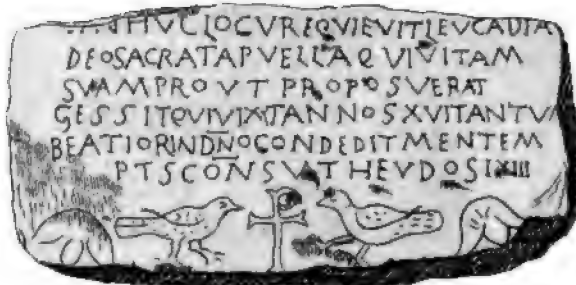 HVCLOCVREQVIEVITLEVCADIA
DEOSACRATAPVELLAQVIVITAM
SVAMPROVT PROPOSVERAT
GESSITQVIVIXITANNOSXVITANTV
BEATIORINDN̅OCONDEDITMENTEM
PTSCON̅SVTHEVDOSIXIIII